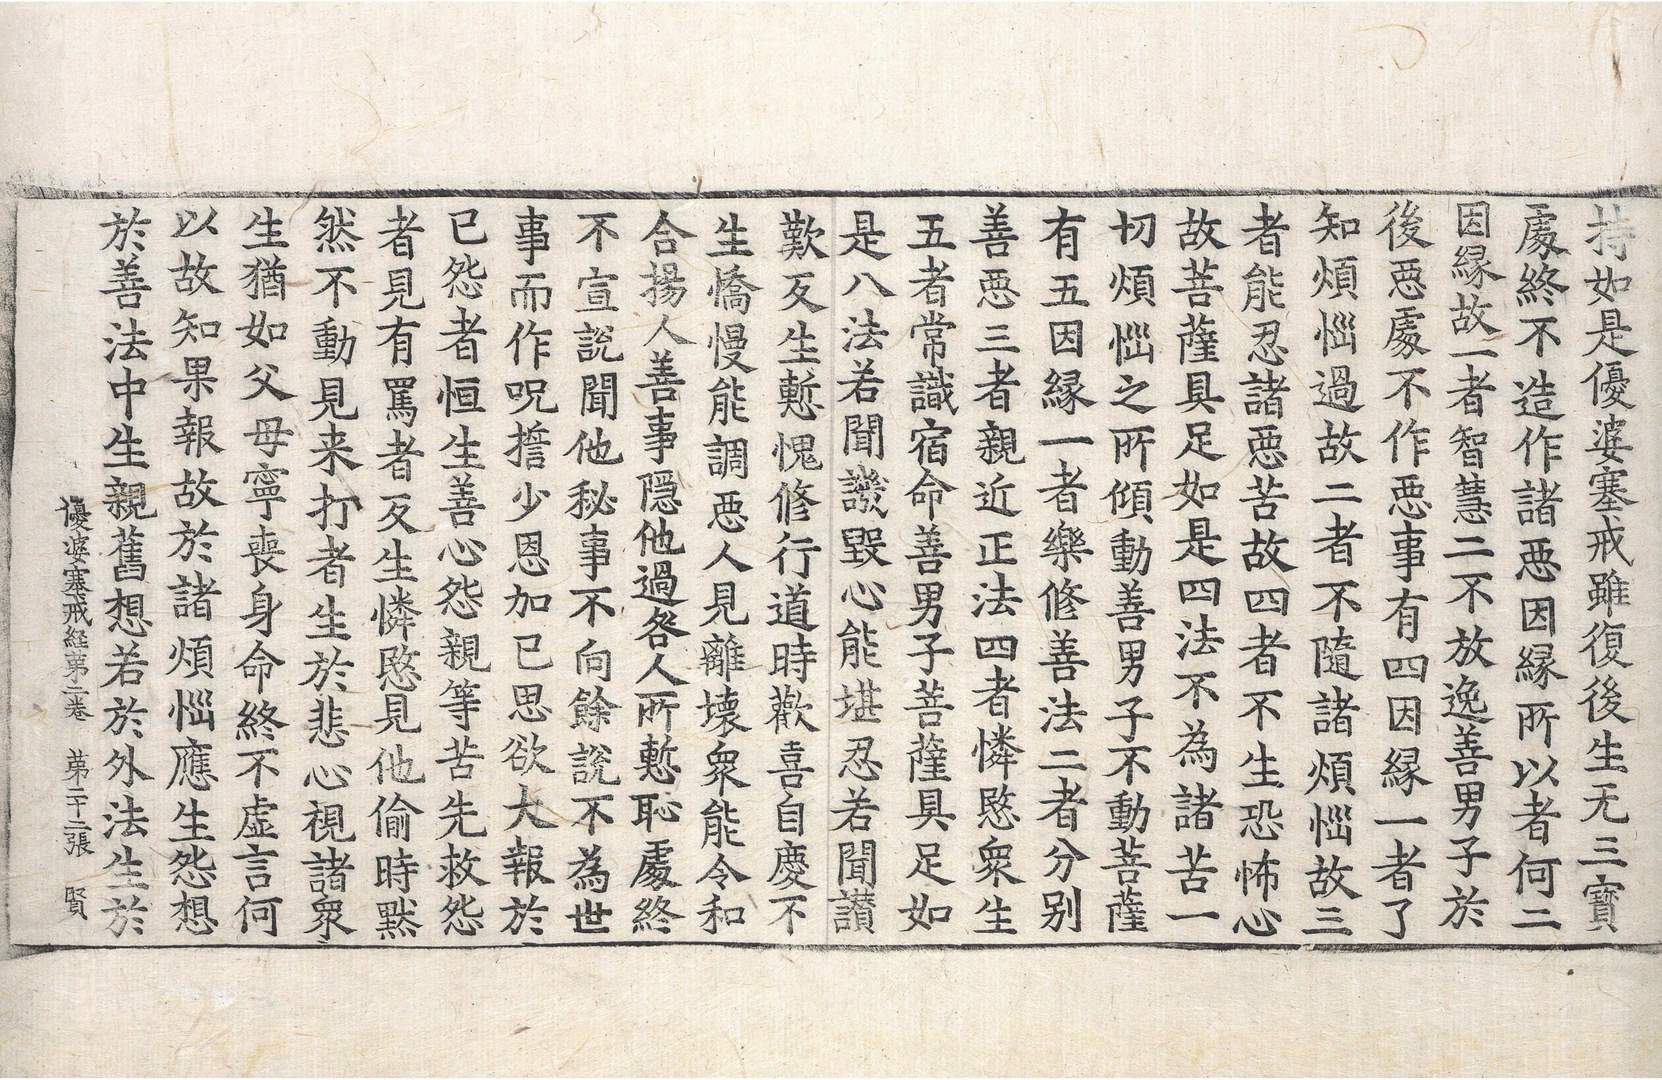 持如是優婆塞戒雖復後生无三寶
處終不造作諸惡因縁所以者何二
因縁故一者智慧二不放逸善男子於
後惡處不作惡事有四因縁一者了
知煩惱過故二者不隨諸煩惱故三
者能忍諸惡苦故四者不生恐怖心
故菩薩具足如是四法不為諸苦一
切煩惱之所傾動善男子不動菩薩
有五因縁一者樂修善法二者分别
善惡三者親近正法四者憐愍衆生
五者常識宿命善男子菩薩具足如
是八法若聞譏毀心能堪忍若聞讃
歎反生慙愧修行道時歡喜自慶不
生憍慢能調惡人見離壞衆能令和
合揚人善事隱他過咎人所慙恥處終
不宣說聞他秘事不向餘說不為世
事而作呪誓少恩加己思欲大報於
已怨者恒生善心怨親等苦先救怨
者見有罵者反生憐愍見他偷時默
然不動見来打者生於悲心視諸衆
生猶如父母寧喪身命終不虛言何
以故知果報故於諸煩惱應生怨想
於善法中生親舊想若於外法生於
優婆塞戒経第二卷 第二十二張 賢